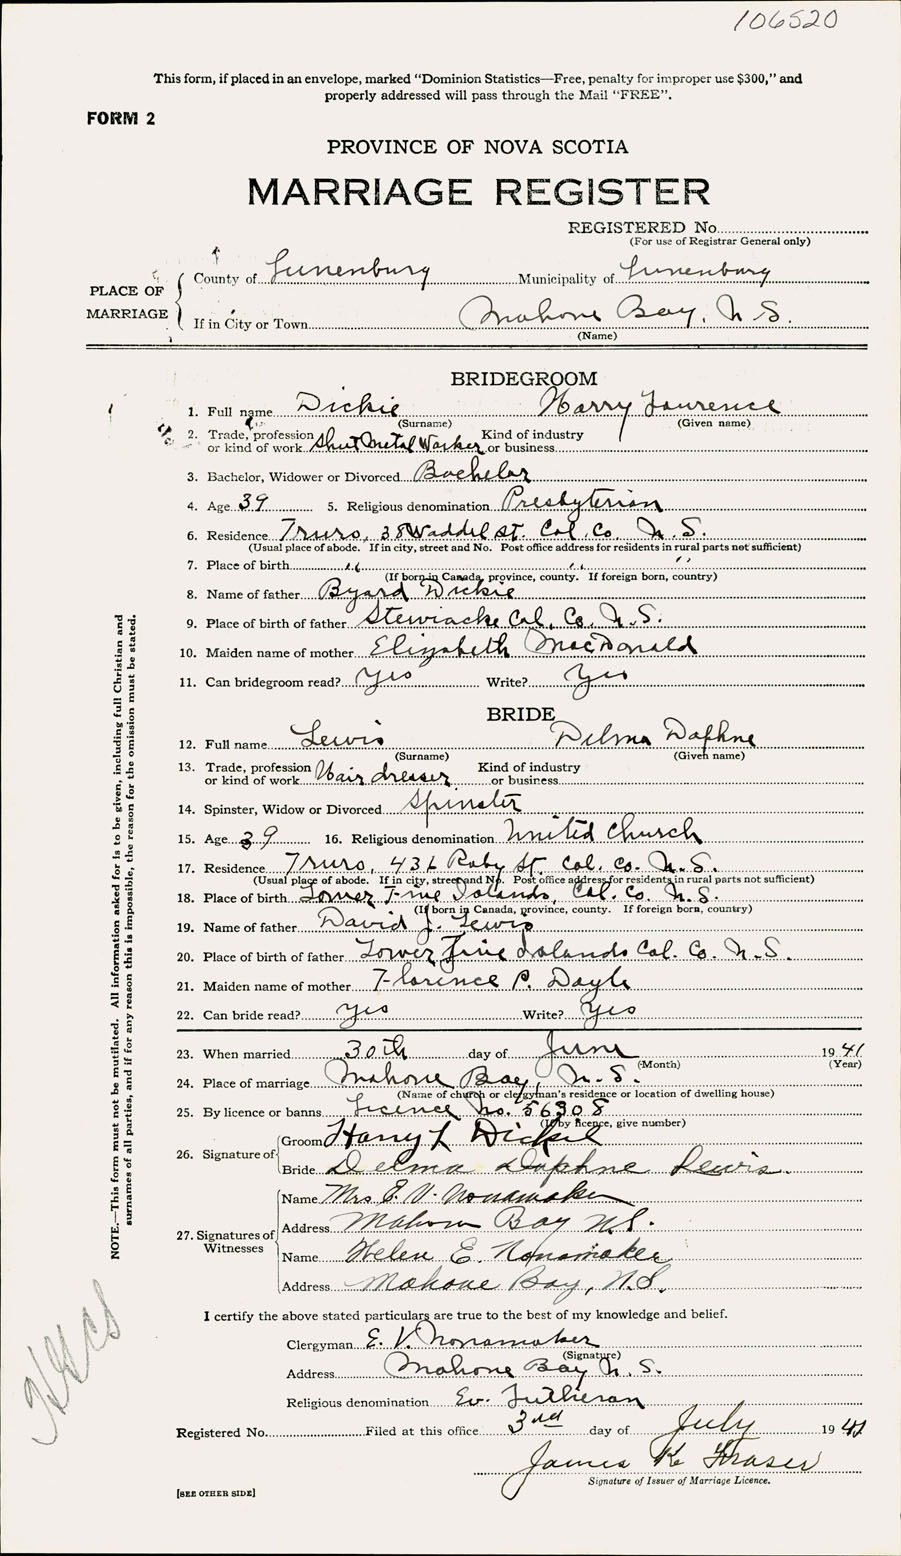 106520
This form, if placed in an envelope, marked "Dominion Statistics—Free, penalty for improper use $300," and
properly addressed will pass through the Mail "FREE".
FORM 2
PROVINCE OF NOVA SCOTIA
MARRIAGE REGISTER
REGISTERED No.
(For use of Registrar General only)
PLACE OF MARRIAGE
County of Lunenburg Municipality of Lunenburg
If in City or Town Mahone Bay, N.S.
(Name)
BRIDEGROOM
1. Full name Dickie Harry Lawrence
(Surname) (Given name)
2. Trade, profession or kind of work Sheet Metal Worker Kind of industry or business
3. Bachelor, Widower or Divorced Bachelor
4. Age 39 5. Religious denomination Presbyterian
6. Residence Truro, 38 Waddel St. Col. Co. N.S.
(Usual place of abode. If in city, street and No. Post office address for residents in rural parts not sufficient)
7. Place of birth " " "
(If born in Canada, province, county. If foreign born, country)
8. Name of father Byard Dickie
9. Place of birth of father Stewiacke Col. Co. N.S.
10. Maiden name of mother Elizabeth MacDonald
11. Can bridegroom read? Yes Write? Yes
BRIDE
12. Full name Lewis Delma Daphne
(Surname) (Given name)
13. Trade, profession or kind of work Hair dresser Kind of industry or business
14. Spinster, Widow or Divorced Spinster
15. Age 39 16. Religious denomination United Church
17. Residence Truro, Roby St. Col. Co. N.S.
(Usual place of abode. If in city, street and No. Post office address for residents in rural parts not sufficient)
18. Place of birth Lower Five Islands, Col. Co. N.S.
(If born in Canada, province, county. If foreign born, country)
19. Name of father David J. Lewis
20. Place of birth of father Lower Five Islands Col. Co. N.S.
21. Maiden name of mother Florence P. Doyle
22. Can bride read? yes Write? yes
23. When married 30th day of June 1941
(Month) (Year)
24. Place of marriage Mahone Bay, N.S.
(Name of church or clergyman's residence or location of dwelling house)
25. By licence or banns Licence No. 56308
(If by licence, give number)
26. Signature of
Groom Harry L Dickie
Bride Delma Daphne Lewis.
27. Signatures of Witnesses
Name Mrs E. V. Nonamaker
Address Mahone Bay N.S.
Name Helen E. Nonamaker
Address Mahone Bay, N.S.
I certify the above stated particulars are true to the best of my knowledge and belief.
Clergyman E. V. Nonamaker
(Signature)
Address Mahone Bay N.S.
Religious denomination Ev. Lutheran
Registered No. Filed at this office 3rd day of July 1941
James K Fraser
Signature of Issuer of Marriage Licence.
[SEE OTHER SIDE]
NOTE.—This form must not be mutilated. All information asked for is to be given, including full Christian and
surnames of all parties, and if for any reason this is impossible, the reason for the omission must be stated.